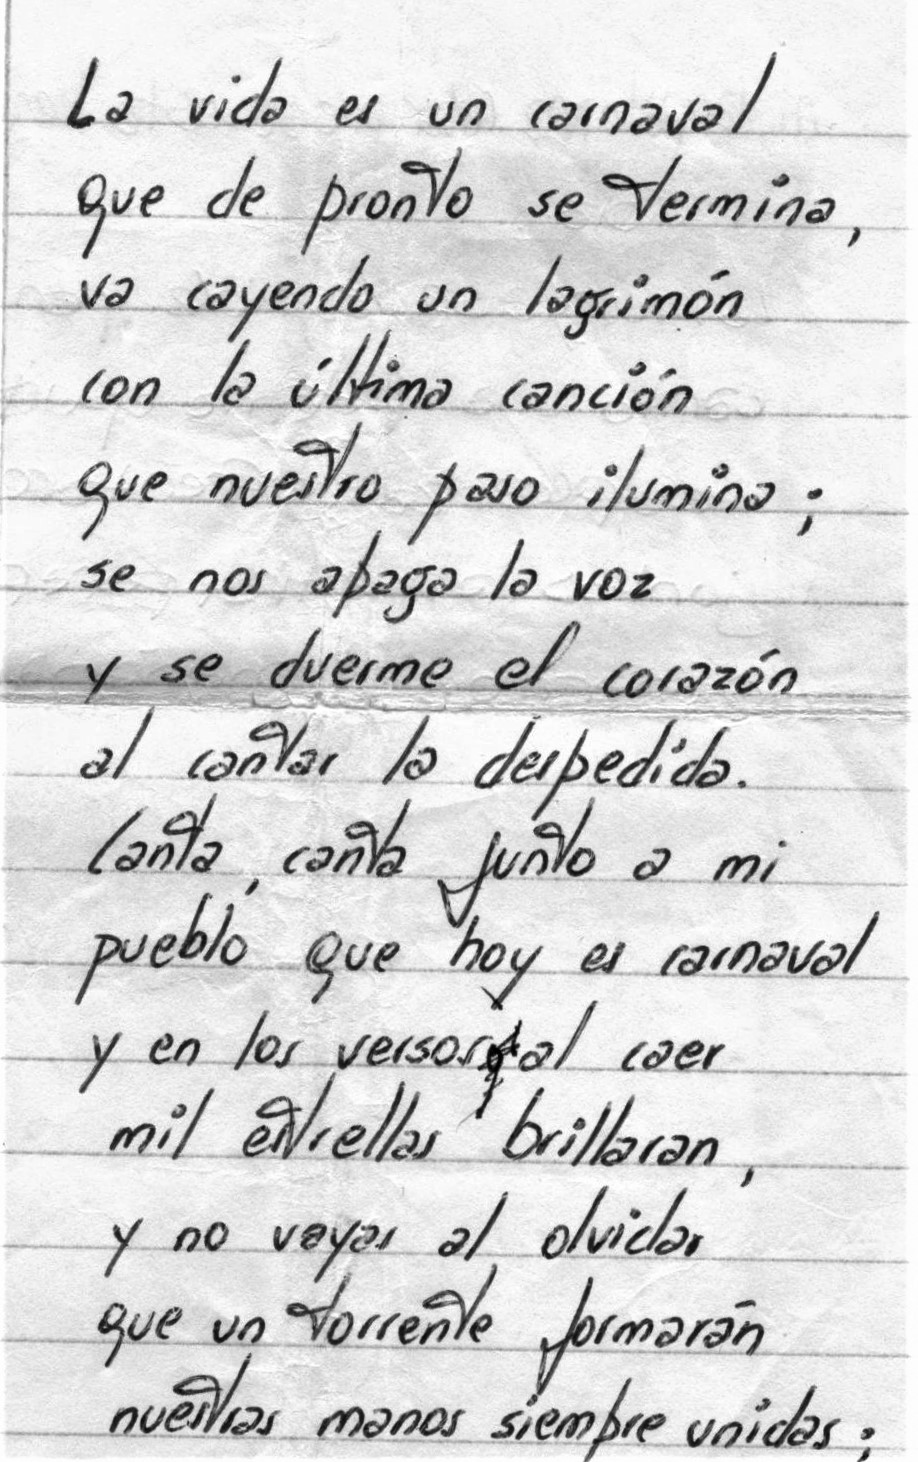 La vida es un carnaval
que de pronto se termina,
va cayendo un lagrimón
con la última canción
que nuestro paso ilumina;
se nos apaga la voz
y se duerme el corazón
al cantar la despedida.
Canta, canta junto a mi
pueblo que hoy es carnaval
y en los versos al caer
mil estrellas brillaran,
y no vayas al olvidar
que un torrente formarán
nuestras manos siempre unidas;